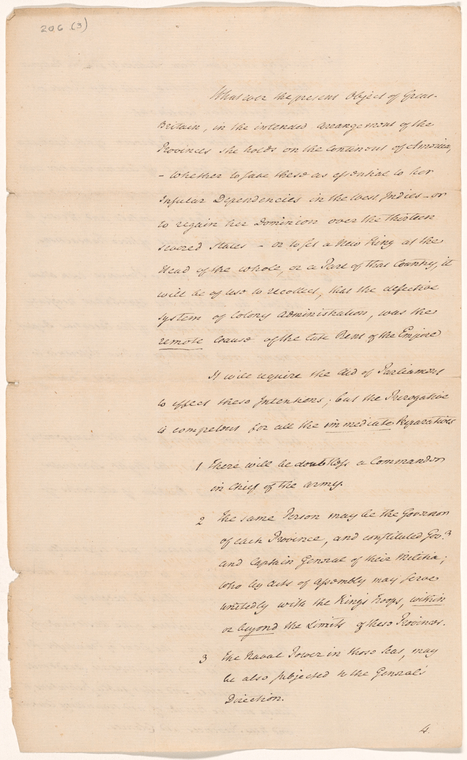 206 (3)
Whatever the present Object of Great
Britain, in the intended arrangement of the
Provinces she holds on the Continent of America,
- whether to save these as essential to her
Insular Dependencies in the West Indies - or
to regain her Dominion over the thirteen
severed States - or to set a New King at the
Head of the whole, or a Part of that Country, it
will be of use to recollect, that the defective
System of Colony Administration, was the
remote Cause of the late Rent of the Empire
It will require the Aid of Parliament
to effect these Intentions; but the Prerogative
is competent for all the immediate Reparations
1 There will be doubtless a Commander
in Chief of the army.
2 The same Person may be the Governor
of each Province, and constituted Gov.
and Captain General of their Militia;
who by Acts of Assembly may serve
unitedly with the King's Troops, within
or beyond the Limits of these Provinces.
3 The Naval Power in those Seas, may
be also subjected to the General's
Direction.
4.